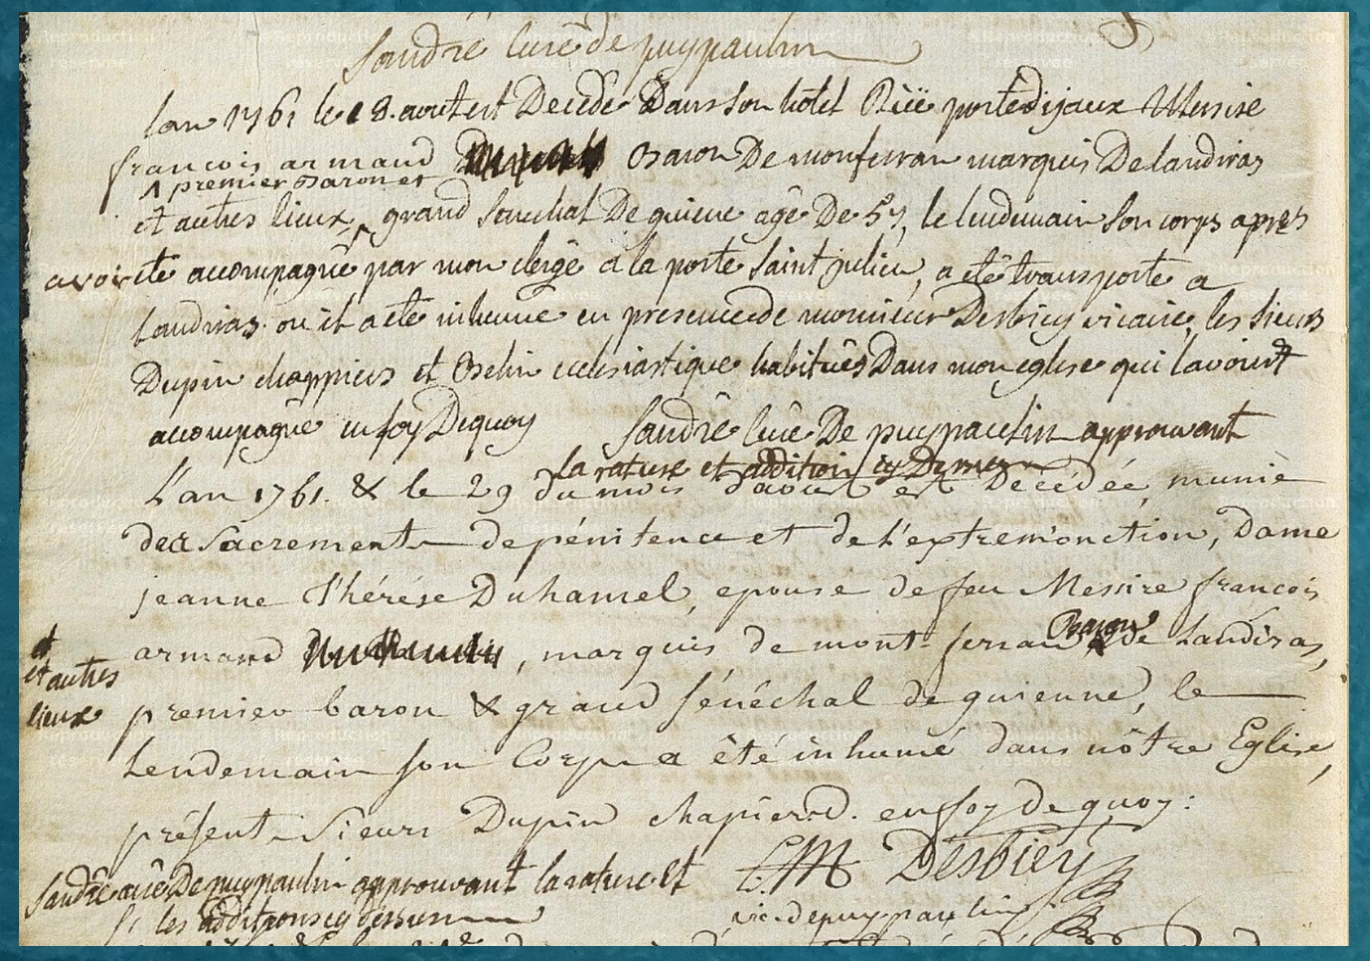 Sandré curé de puypaulin
lan 1761 le 18. aout est Decédé Dans son hôtel Rüe porte dijaux Messire
francois armand Baron De monferran marquis De landiras
^ premier Baron et
et autres lieux, ^ grand senechal De guiene agé De 57, le lendemain son corps apres
avoir été accompagné par mon clergé a la porte saint julien, a été transporté a
landiras ou il a été inhumé en presence de monsieur Desbiey vicaire, les sieurs
Dupin chappiers et Belin ecclesiastique habitués Dans mon eglise qui lavoient
accompagné en foy Dequoy Sandré curé De puypaulin approuvant
la rature et addition cy Dessus
L'an 1761. & le 29 du mois d'aout est Décédée, munie
des Sacrements de pénitence et de l'extremonction, Dame
jeanne Thérése Duhamel, epouse de feu Messire françois
armand , marquis de mont-ferran, Baron de Landiras,
et autres
lieux
premier baron & grand sénéchal de guienne, le
Lendemain son Corps a été inhumé dans nôtre Eglise,
présents Sieurs Dupin chapier. en foy de quoy:
Sandré curé De puypaulin approuvant la rature et Desbiey
les additions cy dessus vic. de puy paulin